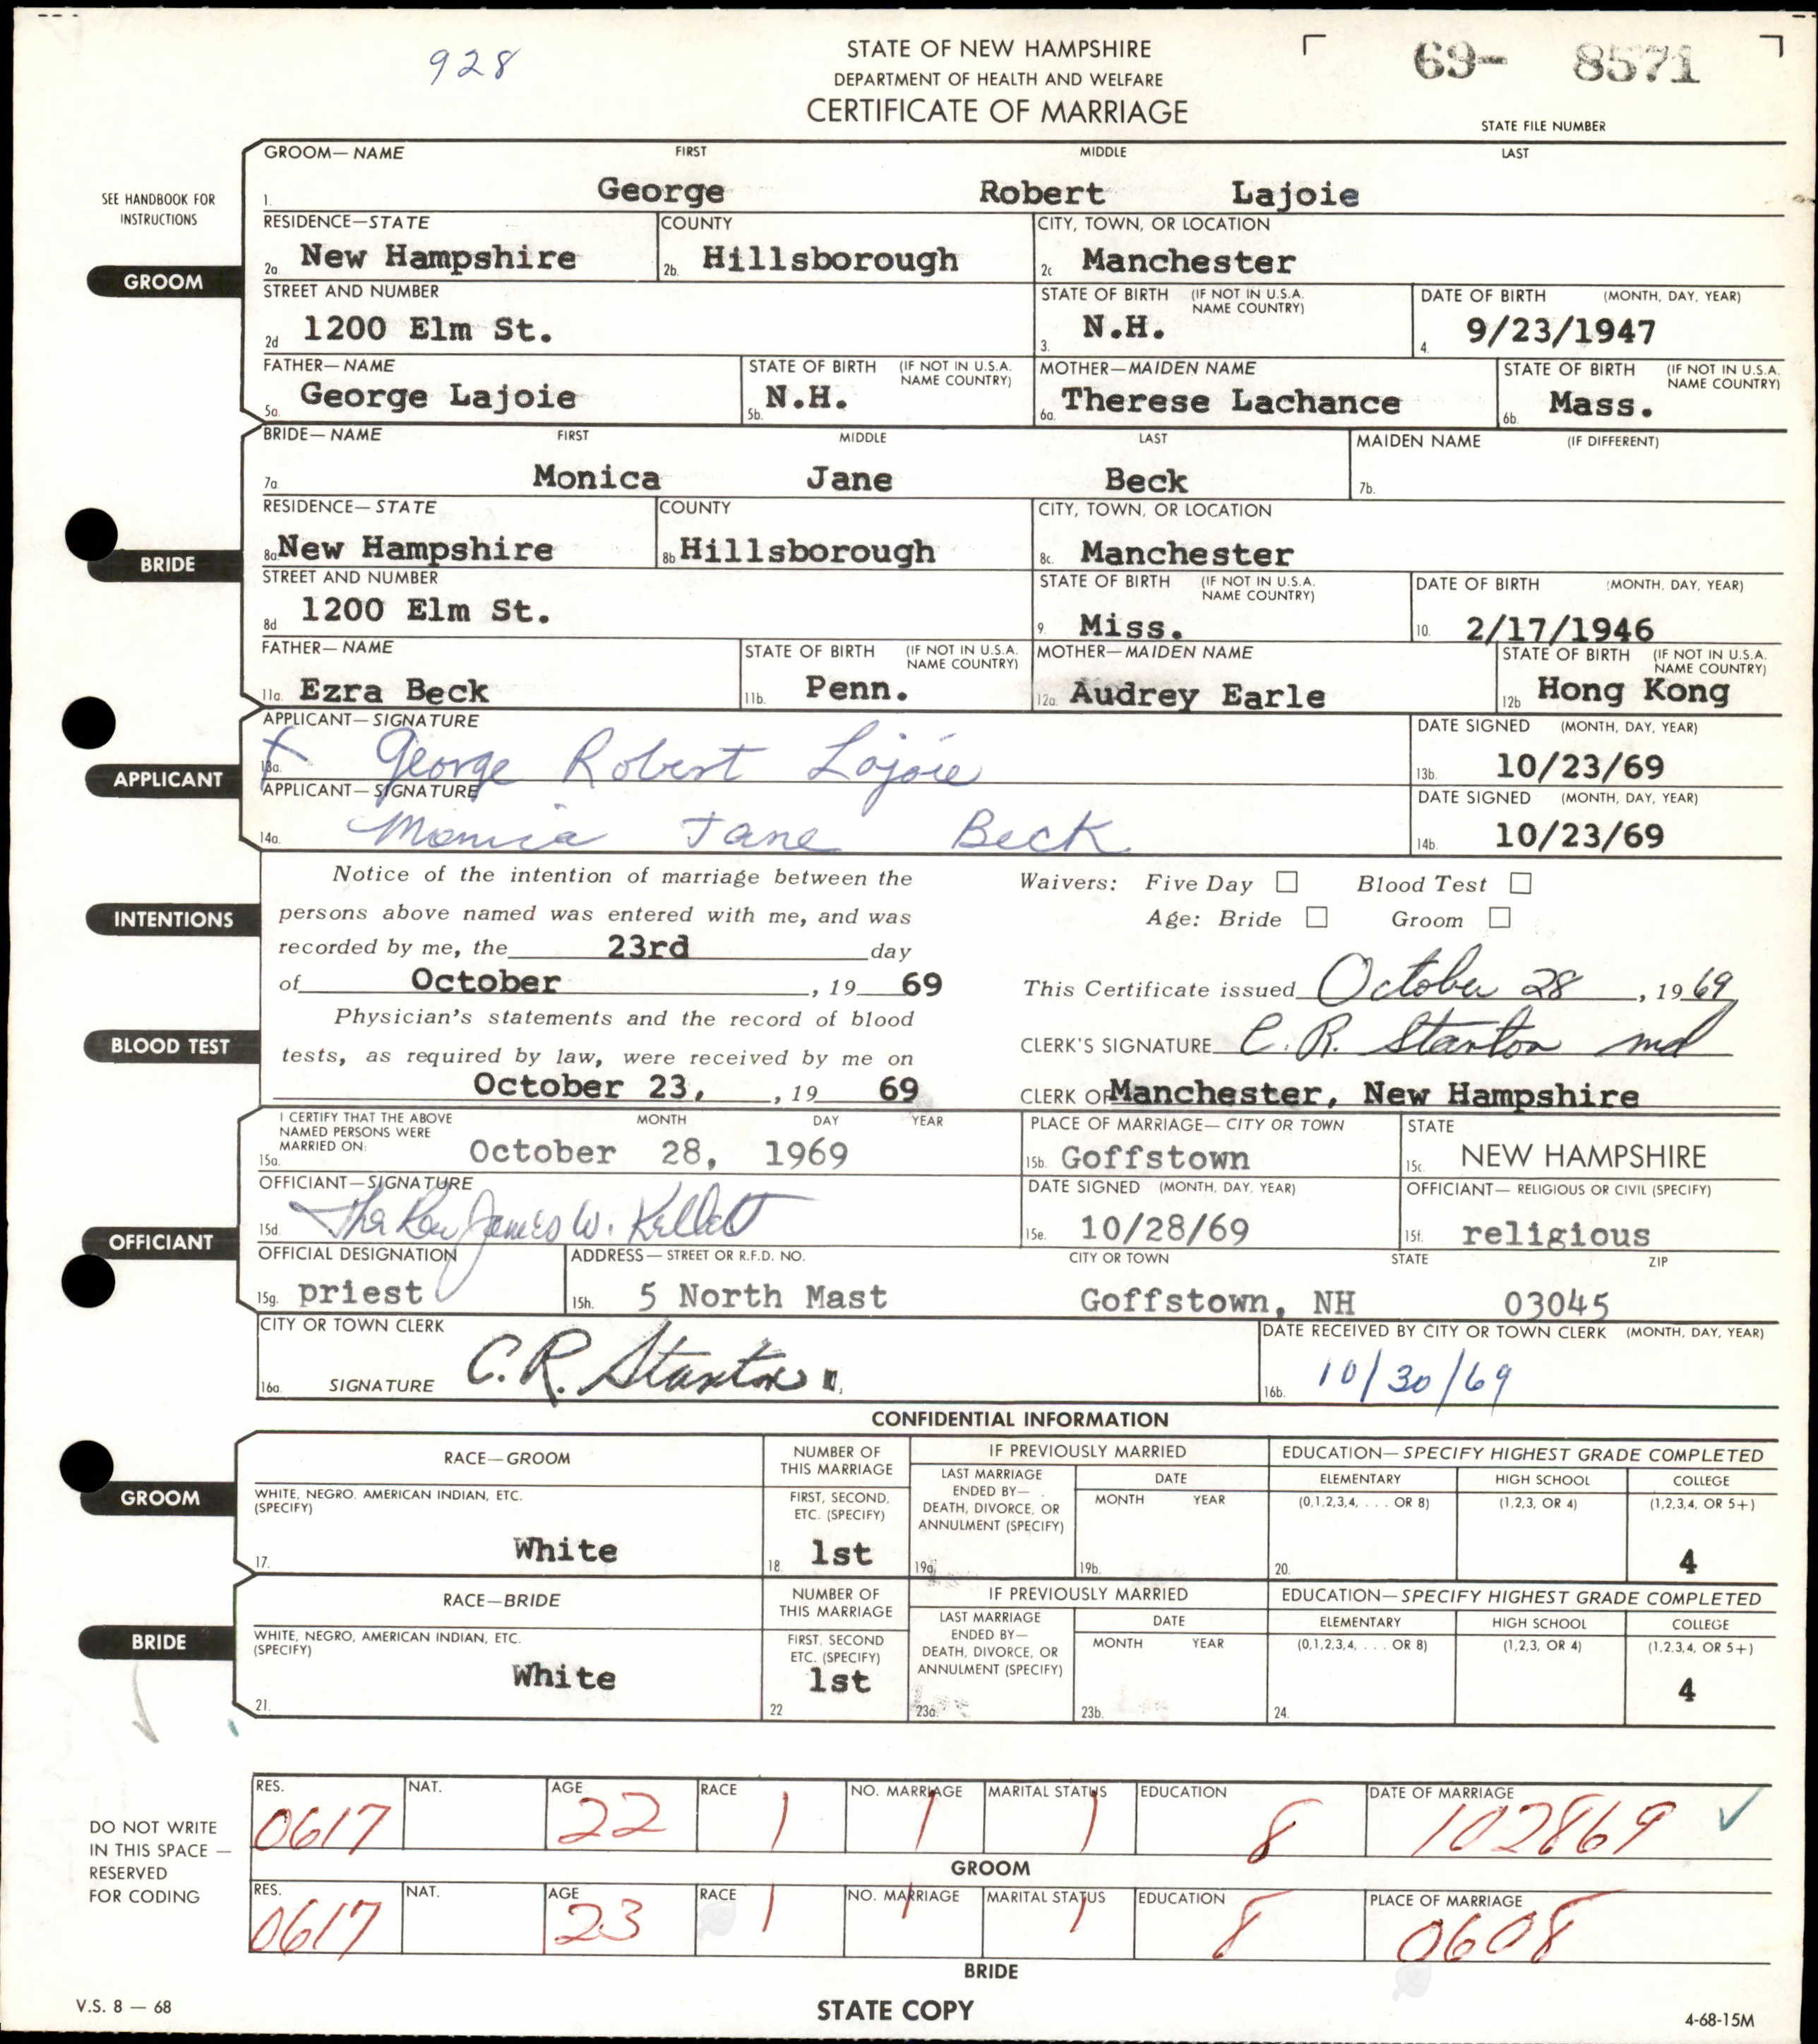 928
STATE OF NEW HAMPSHIRE
DEPARTMENT OF HEALTH AND WELFARE
CERTIFICATE OF MARRIAGE
69- 8571
STATE FILE NUMBER
SEE HANDBOOK FOR INSTRUCTIONS
GROOM
GROOM—NAME FIRST MIDDLE LAST
1. George Robert Lajoie
RESIDENCE—STATE COUNTY CITY, TOWN, OR LOCATION
2a. New Hampshire 2b. Hillsborough 2c Manchester
STREET AND NUMBER STATE OF BIRTH (IF NOT IN U.S.A. NAME COUNTRY) DATE OF BIRTH (MONTH, DAY, YEAR)
2d 1200 Elm St. 3. N.H. 4. 9/23/1947
FATHER—NAME STATE OF BIRTH (IF NOT IN U.S.A. NAME COUNTRY) MOTHER—MAIDEN NAME STATE OF BIRTH (IF NOT IN U.S.A. NAME COUNTRY)
5a. George Lajoie 5b. N.H. 6a. Therese Lachance 6b. Mass.
BRIDE
BRIDE—NAME FIRST MIDDLE LAST MAIDEN NAME (IF DIFFERENT)
7a Monica Jane Beck 7b.
RESIDENCE—STATE COUNTY CITY, TOWN, OR LOCATION
8a. New Hampshire 8b Hillsborough 8c. Manchester
STREET AND NUMBER STATE OF BIRTH (IF NOT IN U.S.A. NAME COUNTRY) DATE OF BIRTH (MONTH, DAY, YEAR)
8d 1200 Elm St. 9. Miss. 10. 2/17/1946
FATHER—NAME STATE OF BIRTH (IF NOT IN U.S.A. NAME COUNTRY) MOTHER—MAIDEN NAME STATE OF BIRTH (IF NOT IN U.S.A. NAME COUNTRY)
11a. Ezra Beck 11b. Penn. 12a. Audrey Earle 12b Hong Kong
APPLICANT
APPLICANT—SIGNATURE DATE SIGNED (MONTH, DAY, YEAR)
13a. X George Robert Lajoie 13b. 10/23/69
APPLICANT—SIGNATURE DATE SIGNED (MONTH, DAY, YEAR)
14a. Monica Jane Beck 14b. 10/23/69
INTENTIONS
Notice of the intention of marriage between the
persons above named was entered with me, and was
recorded by me, the 23rd day
of October , 19 69
Waivers: Five Day Blood Test
Age: Bride Groom
This Certificate issued October 28 , 19 69
BLOOD TEST
Physician's statements and the record of blood
tests, as required by law, were received by me on
October 23, , 19 69
CLERK'S SIGNATURE C. R. Stanton md
CLERK OF Manchester, New Hampshire
OFFICIANT
I CERTIFY THAT THE ABOVE NAMED PERSONS WERE MARRIED ON: MONTH DAY YEAR PLACE OF MARRIAGE—CITY OR TOWN STATE
15a. October 28, 1969 15b. Goffstown 15c. NEW HAMPSHIRE
OFFICIANT—SIGNATURE DATE SIGNED (MONTH, DAY, YEAR) OFFICIANT—RELIGIOUS OR CIVIL (SPECIFY)
15d. The Rev James W. Kellett 15e. 10/28/69 15f. religious
OFFICIAL DESIGNATION ADDRESS—STREET OR R.F.D. NO. CITY OR TOWN STATE ZIP
15g. priest 15h. 5 North Mast Goffstown, NH 03045
CITY OR TOWN CLERK DATE RECEIVED BY CITY OR TOWN CLERK (MONTH, DAY, YEAR)
16a. SIGNATURE C.R. Stanton 16b. 10/30/69
CONFIDENTIAL INFORMATION
GROOM
RACE—GROOM NUMBER OF THIS MARRIAGE IF PREVIOUSLY MARRIED EDUCATION—SPECIFY HIGHEST GRADE COMPLETED
WHITE, NEGRO, AMERICAN INDIAN, ETC. (SPECIFY) FIRST, SECOND, ETC. (SPECIFY) LAST MARRIAGE ENDED BY—DEATH, DIVORCE, OR ANNULMENT (SPECIFY) DATE MONTH YEAR ELEMENTARY (0,1,2,3,4, . . . OR 8) HIGH SCHOOL (1,2,3, OR 4) COLLEGE (1,2,3,4, OR 5+)
17. White 18 1st 19a. 19b. 20. 4
BRIDE
RACE—BRIDE NUMBER OF THIS MARRIAGE IF PREVIOUSLY MARRIED EDUCATION—SPECIFY HIGHEST GRADE COMPLETED
WHITE, NEGRO, AMERICAN INDIAN, ETC. (SPECIFY) FIRST, SECOND ETC. (SPECIFY) LAST MARRIAGE ENDED BY—DEATH, DIVORCE, OR ANNULMENT (SPECIFY) DATE MONTH YEAR ELEMENTARY (0,1,2,3,4, . . . OR 8) HIGH SCHOOL (1,2,3, OR 4) COLLEGE (1,2,3,4, OR 5+)
21. White 22 1st 23a. 23b. 24. 4
DO NOT WRITE IN THIS SPACE — RESERVED FOR CODING
RES. NAT. AGE RACE NO. MARRIAGE MARITAL STATUS EDUCATION DATE OF MARRIAGE
0617 22 1 1 1 8 102869
GROOM
RES. NAT. AGE RACE NO. MARRIAGE MARITAL STATUS EDUCATION PLACE OF MARRIAGE
0617 23 1 1 1 8 0608
BRIDE
V.S. 8 — 68
STATE COPY
4-68-15M